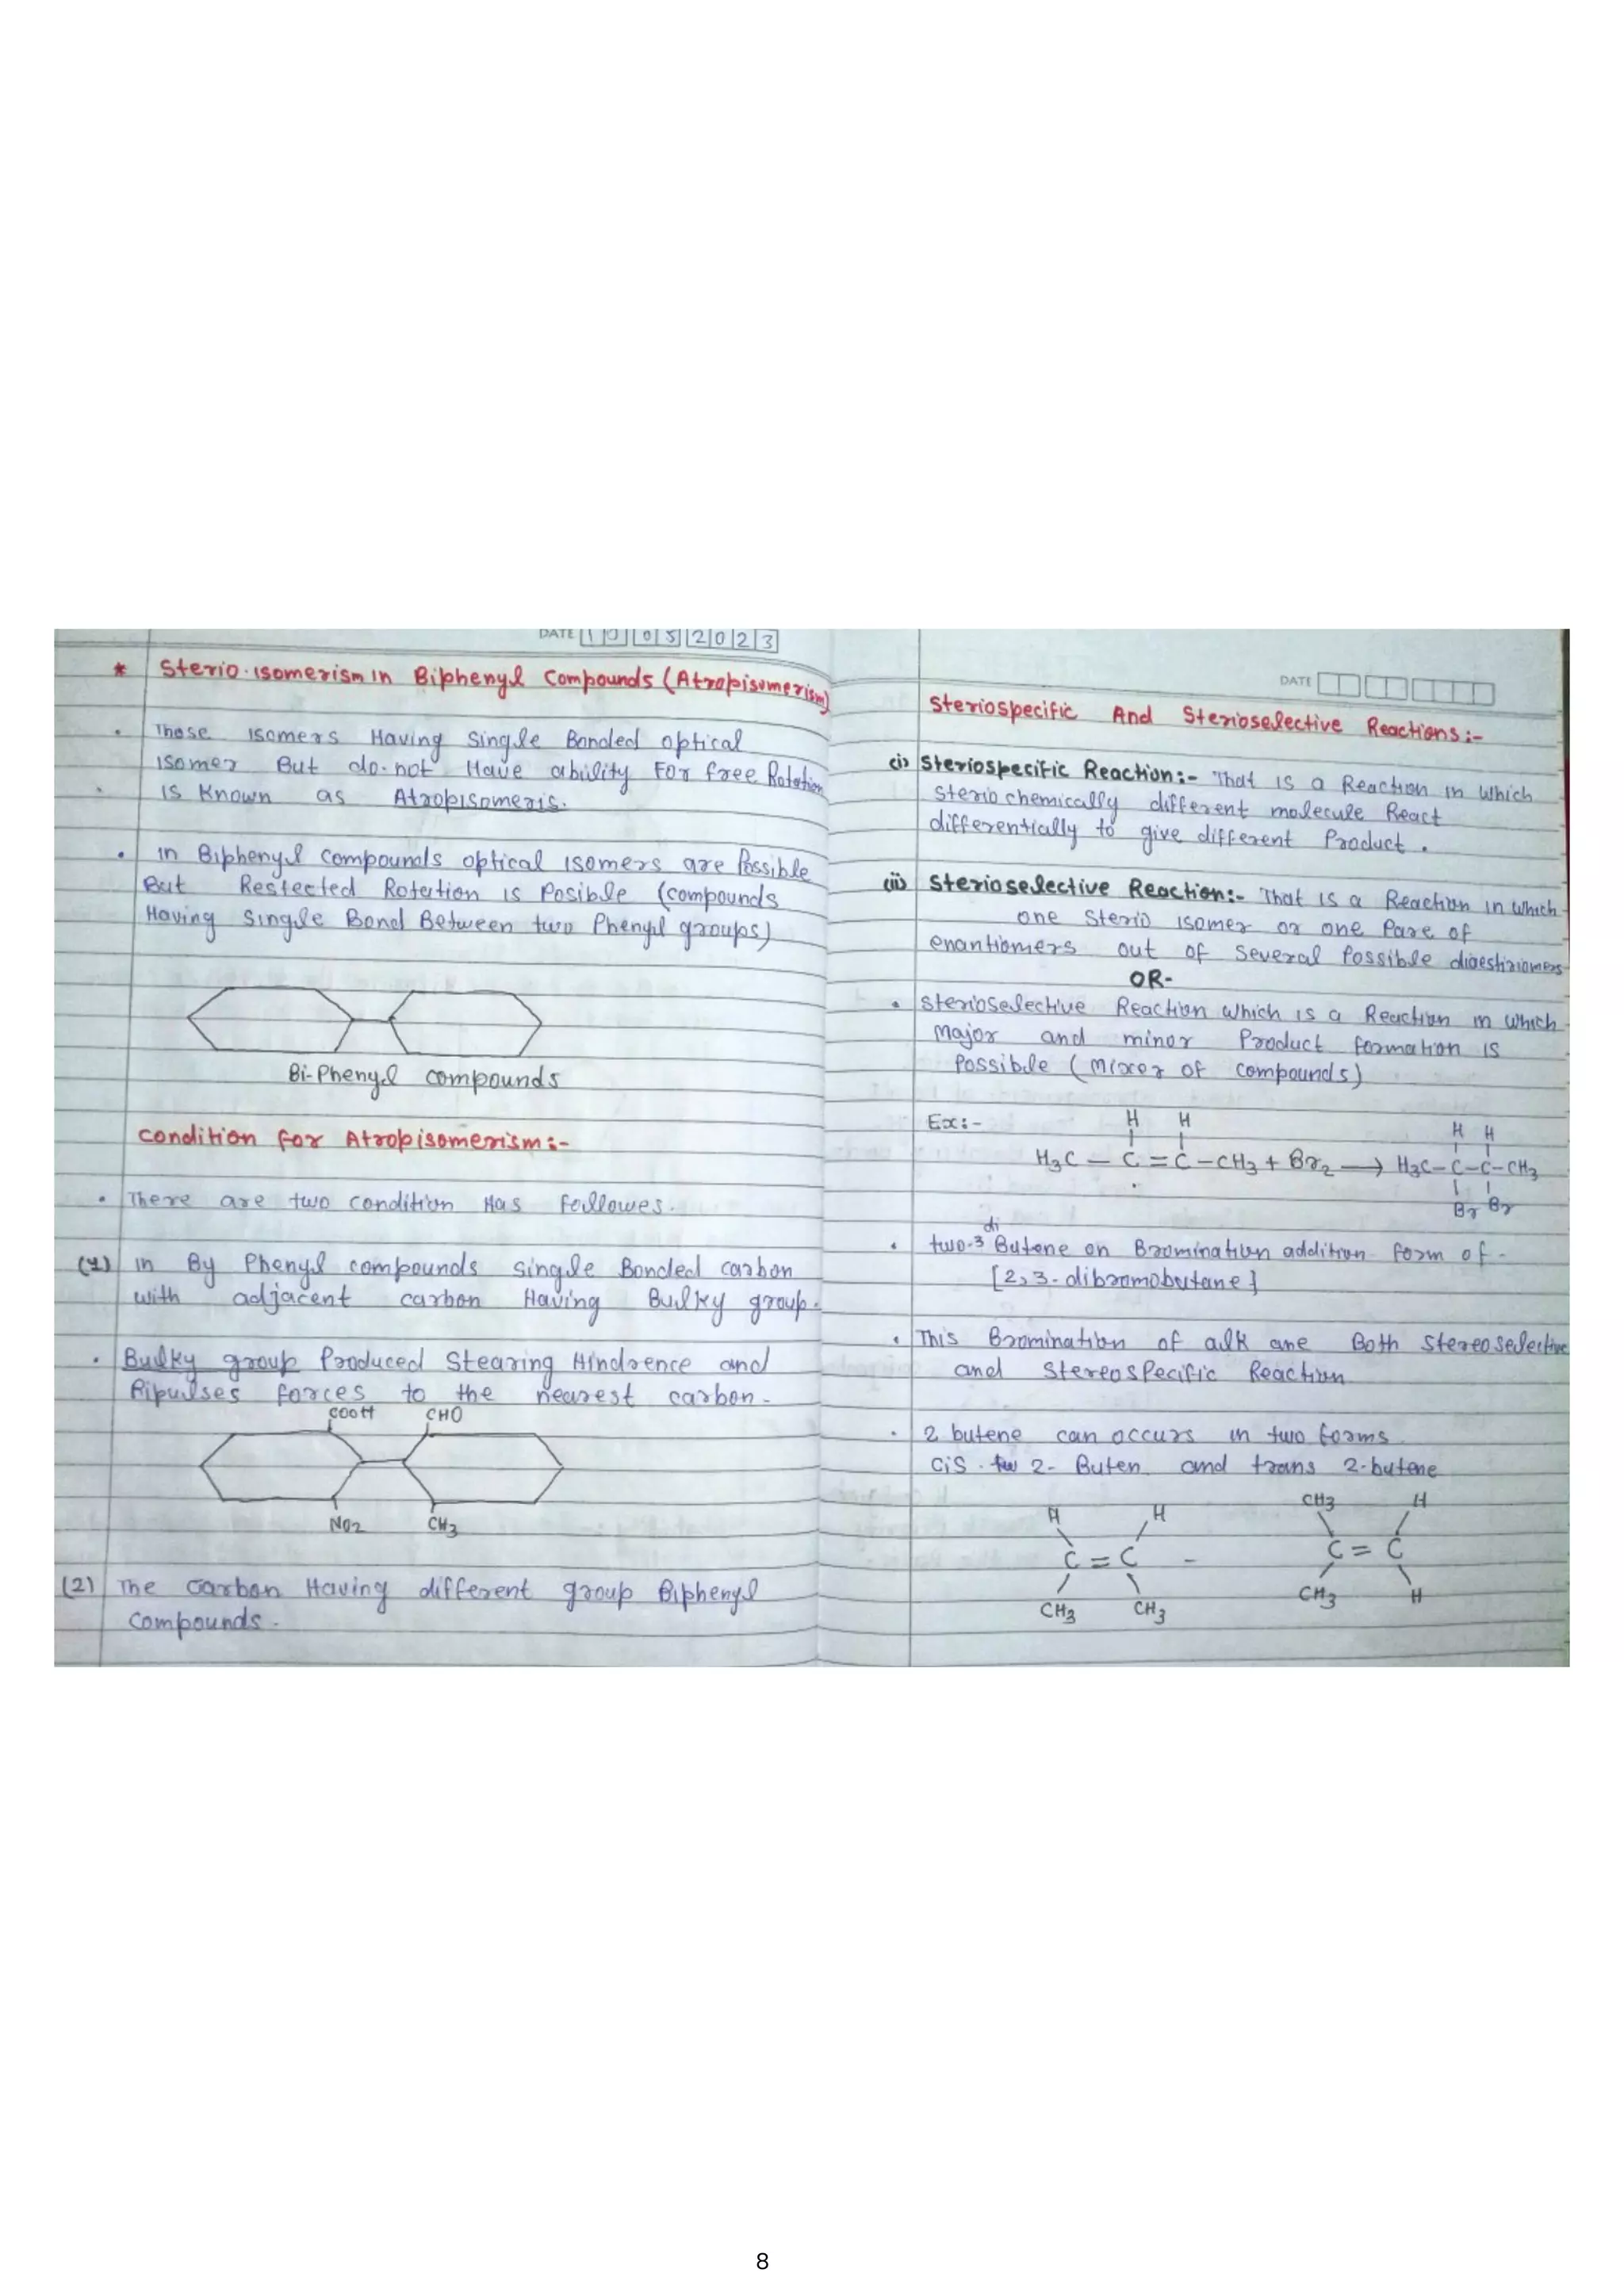 DATE 10 05 2023
* Sterio-isomerism in Biphenyl Compounds (Atropisomerism)
• Those isomers Having Single Bonded optical
isomer But do-not Have ability For free Rotation
is Known as Atropisomeris.
• in Biphenyl compounds optical isomers are Possible
But Restected Rotation is Posible (compounds
Having Single Bond Between two Phenyl groups)
Bi-Phenyl compounds
condition for Atropisomerism:-
• There are two condition Has followes.
(1) in By Phenyl compounds single Bonded carbon
with adjacent carbon Having Bulky group.
• Bulky group Produced Stearing Hindrence and
Ripulses forces to the nearest carbon-
COOH CHO
NO2 CH3
(2) The carbon Having different group Biphenyl
Compounds.
DATE
Steriospecific And Sterioselective Reactions:-
(i) Steriospecific Reaction:- That is a Reaction in which
Steriochemically different molecule React
differentially to give different Product.
(ii) Sterioselective Reaction:- That is a Reaction in which
one Sterio isomer or one Pare of
enantiomers out of Several Possible diaestiriomers
OR-
• Sterioselective Reaction which is a Reaction in which
Major and minor Product formation is
Possible (Mixer of compounds)
Ex:- H H H H
H3C – C = C – CH3 + Br2 → H3C – C – C – CH3
Br Br
di
• two-3 Butene on Bromination addition form of -
[2,3-dibromobutane]
• This Bromination of alk ane Both Stereoselective
and Stereospecific Reaction
• 2 butene can occurs in two forms
Cis - 2- Buten and trans 2-butene
H H CH3 H
C = C – C = C
CH3 CH3 CH3 H
8